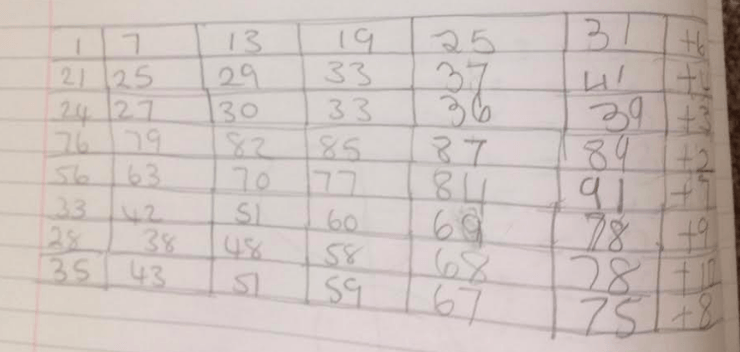 1 7 13 19 25 31 +6
21 25 29 33 37 41
24 27 30 33 36 39 +3
76 79 82 85 87 89 +2
56 63 70 77 84 91 +7
33 42 51 60 69 78 +9
28 38 48 58 68 78 +10
35 43 51 59 67 75 +8